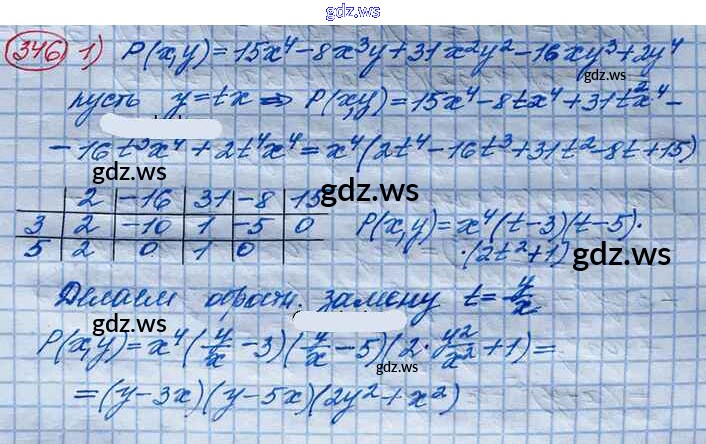 gdz.ws
346 1) P(x,y)=15x⁴-8x³y+31x²y²-16xy³+2y⁴
gdz.ws
пусть y=tx ⇒ P(x,y)=15x⁴-8tx⁴+31t²x⁴-
-16t³x⁴+2t⁴x⁴=x⁴(2t⁴-16t³+31t²-8t+15)
gdz.ws
2 -16 31 -8 15
3 2 -10 1 -5 0 P(x,y)=x⁴(t-3)(t-5)·
5 2 0 1 0 ·(2t²+1)
gdz.ws
gdz.ws
Делаем обратн. замену t=y/x
gdz.ws
P(x,y)=x⁴(y/x-3)(y/x-5)(2·y²/x²+1)=
gdz.ws
=(y-3x)(y-5x)(2y²+x²)
gdz.ws
gdz.ws